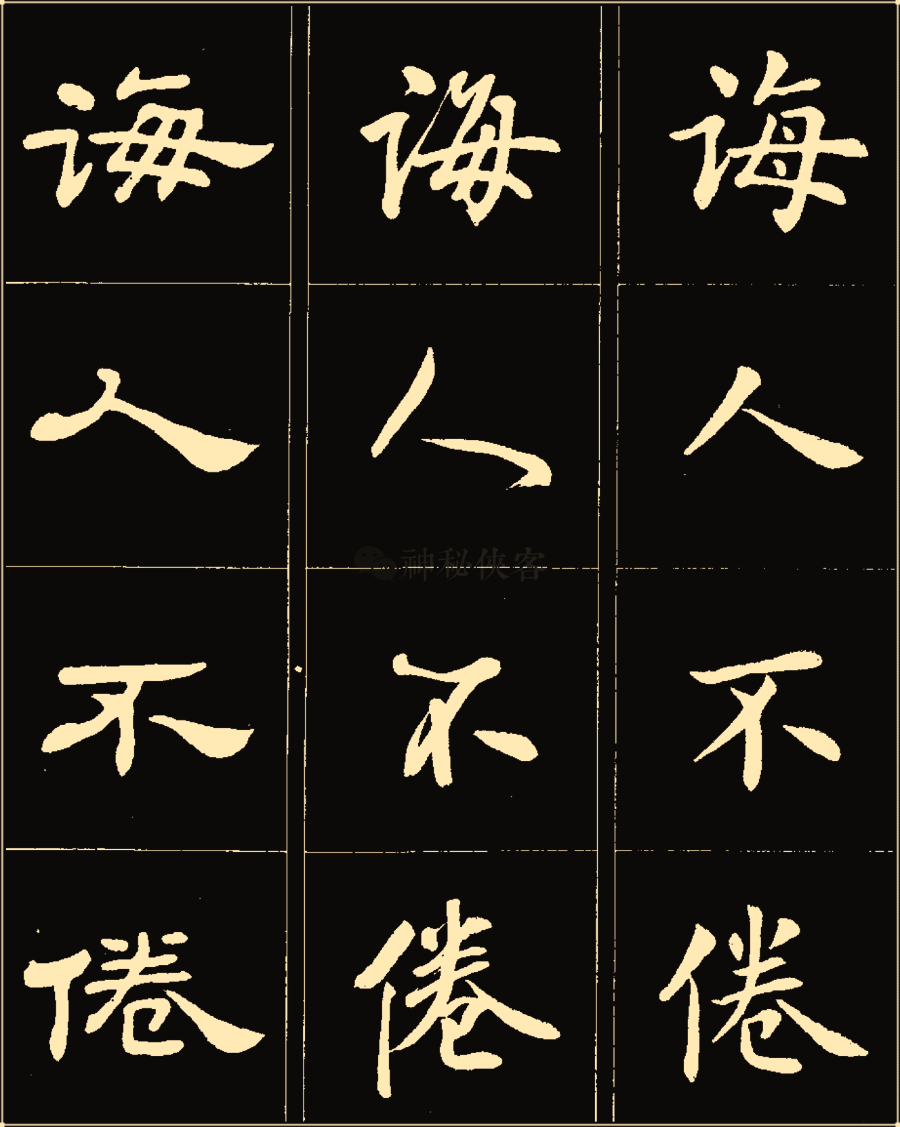 诲人不倦
诲人不倦
诲人不倦
神秘侠客